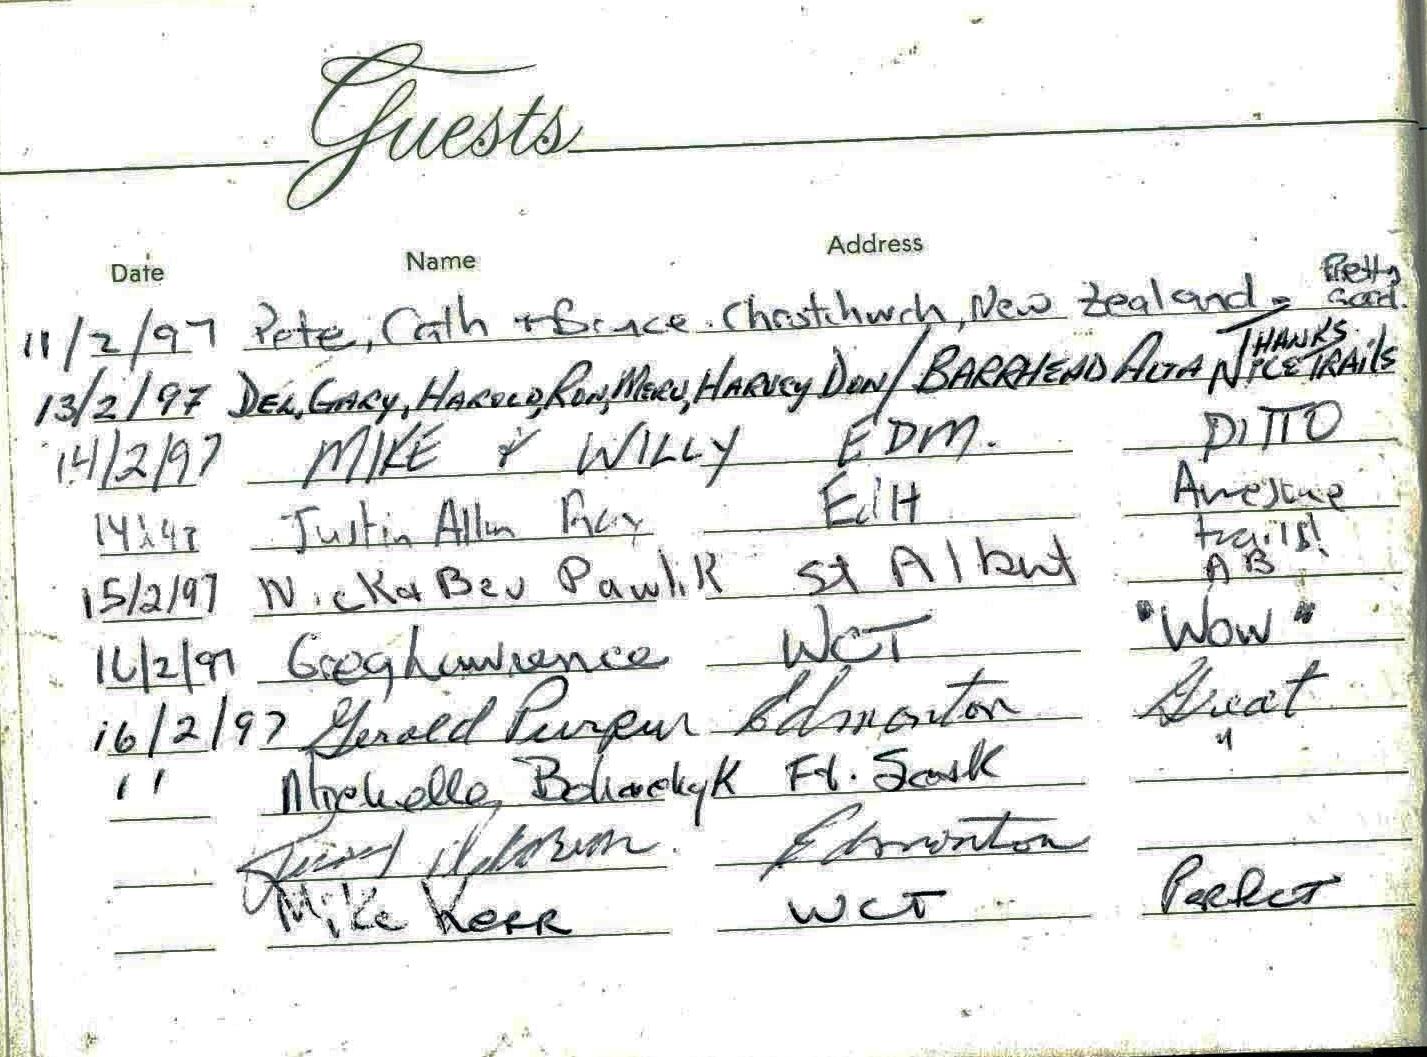 Guests
Date Name Address
Pretty
11/2/97 Pete, Cath + Bruce. Christchurch, New Zealand - Good.
THANKS
13/2/97 DEN, GARY, HAROLD, RON, MERV, HARVEY DON / BARRHEAD ALTA NICE TRAILS
14/2/97 MIKE & WILLY EDM. DITTO
Justin Allen Ray Awesome
trails!
15/2/97 Nick & Bev Pawlik St Albert AB
16/2/97 Greg Lawrence WCT "Wow"
16/2/97 Gerald Edmonton Great
" Michelle Ft. Sask "
Edmonton
Mike Kerr WCT Perfect